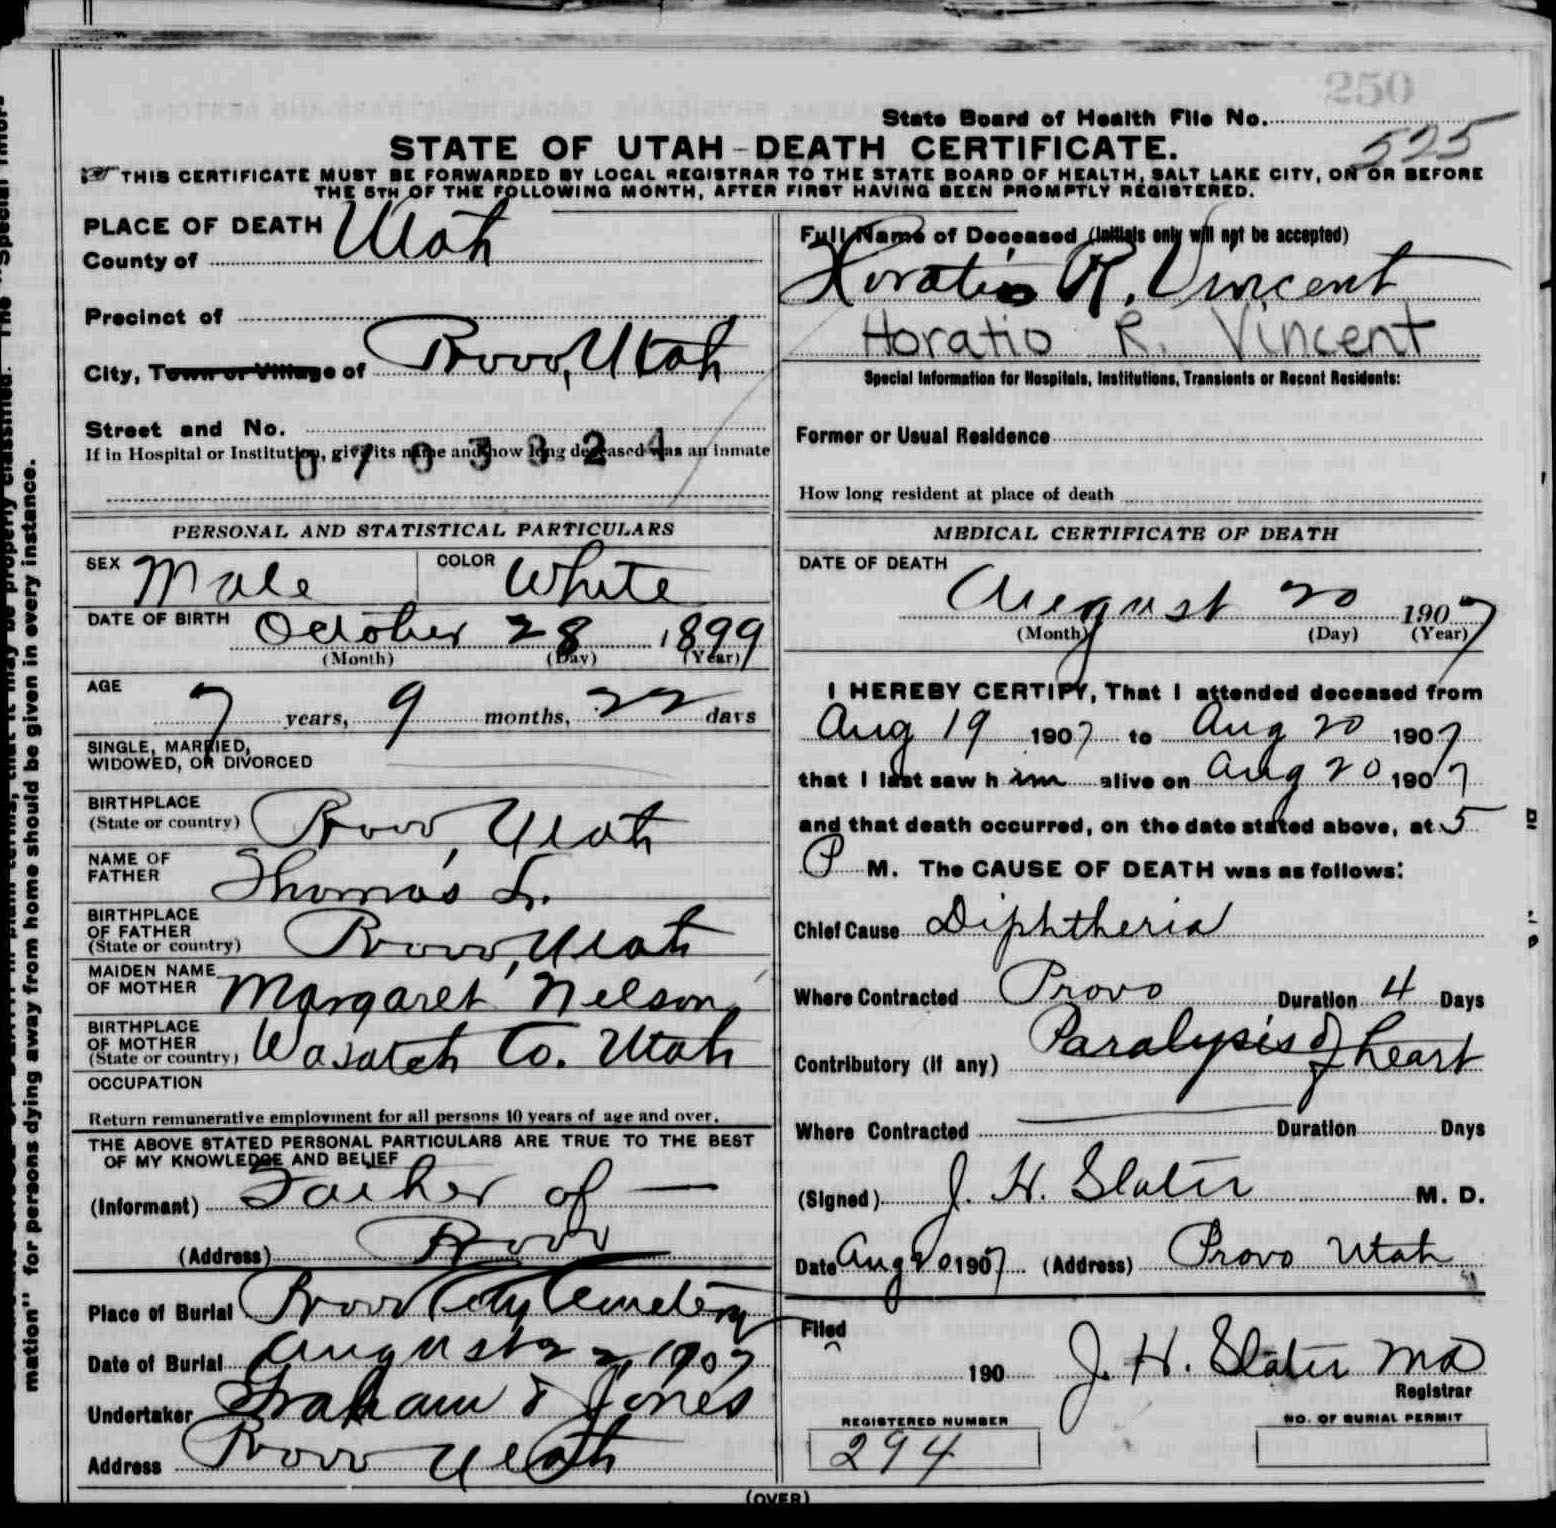 250
State Board of Health File No.
525
STATE OF UTAH-DEATH CERTIFICATE.
THIS CERTIFICATE MUST BE FORWARDED BY LOCAL REGISTRAR TO THE STATE BOARD OF HEALTH, SALT LAKE CITY, ON OR BEFORE
THE 5TH OF THE FOLLOWING MONTH, AFTER FIRST HAVING BEEN PROMPTLY REGISTERED.
PLACE OF DEATH
County of Utah
Precinct of
City, Town or Village of Provo, Utah
Street and No.
If in Hospital or Institution, give its name and how long deceased was an inmate
Full Name of Deceased (Initials only will not be accepted)
Horatio R. Vincent
Horatio R. Vincent
Special Information for Hospitals, Institutions, Transients or Recent Residents:
Former or Usual Residence
How long resident at place of death
PERSONAL AND STATISTICAL PARTICULARS
SEX Male COLOR White
DATE OF BIRTH October 28 1899
(Month) (Day) (Year)
AGE
7 years, 9 months, 22 days
SINGLE, MARRIED,
WIDOWED, OR DIVORCED
BIRTHPLACE
(State or country) Provo, Utah
NAME OF
FATHER Thomas L.
BIRTHPLACE
OF FATHER
(State or country) Provo, Utah
MAIDEN NAME
OF MOTHER Margaret Nelson
BIRTHPLACE
OF MOTHER
(State or country) Wasatch Co. Utah
OCCUPATION
Return remunerative employment for all persons 10 years of age and over.
THE ABOVE STATED PERSONAL PARTICULARS ARE TRUE TO THE BEST
OF MY KNOWLEDGE AND BELIEF
(Informant) Father of —
(Address) Provo
Place of Burial Provo City Cemetery
Date of Burial August 22, 1907
Undertaker Graham & Jones
Address Provo Utah
MEDICAL CERTIFICATE OF DEATH
DATE OF DEATH
August 20 1907
(Month) (Day) (Year)
I HEREBY CERTIFY, That I attended deceased from
Aug 19 1907 to Aug 20 1907
that I last saw him alive on Aug 20 1907
and that death occurred, on the date stated above, at 5
P M. The CAUSE OF DEATH was as follows:
Chief Cause Diphtheria
Where Contracted Provo Duration 4 Days
Contributory (if any) Paralysis of heart
Where Contracted Duration Days
(Signed) J. H. Slater M. D.
Date Aug 20 1907 (Address) Provo Utah
Filed
190 J. H. Slater MD
Registrar
REGISTERED NUMBER NO. OF BURIAL PERMIT
294
(OVER)
mation" for persons dying away from home should be given in every instance.